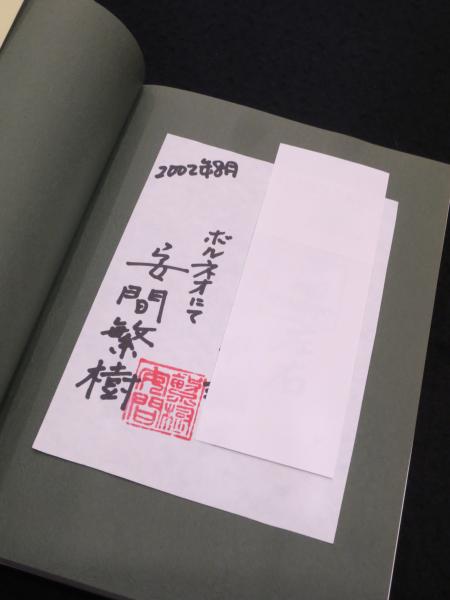 2002年8月
ボルネオにて
安間繁樹
安間繁樹